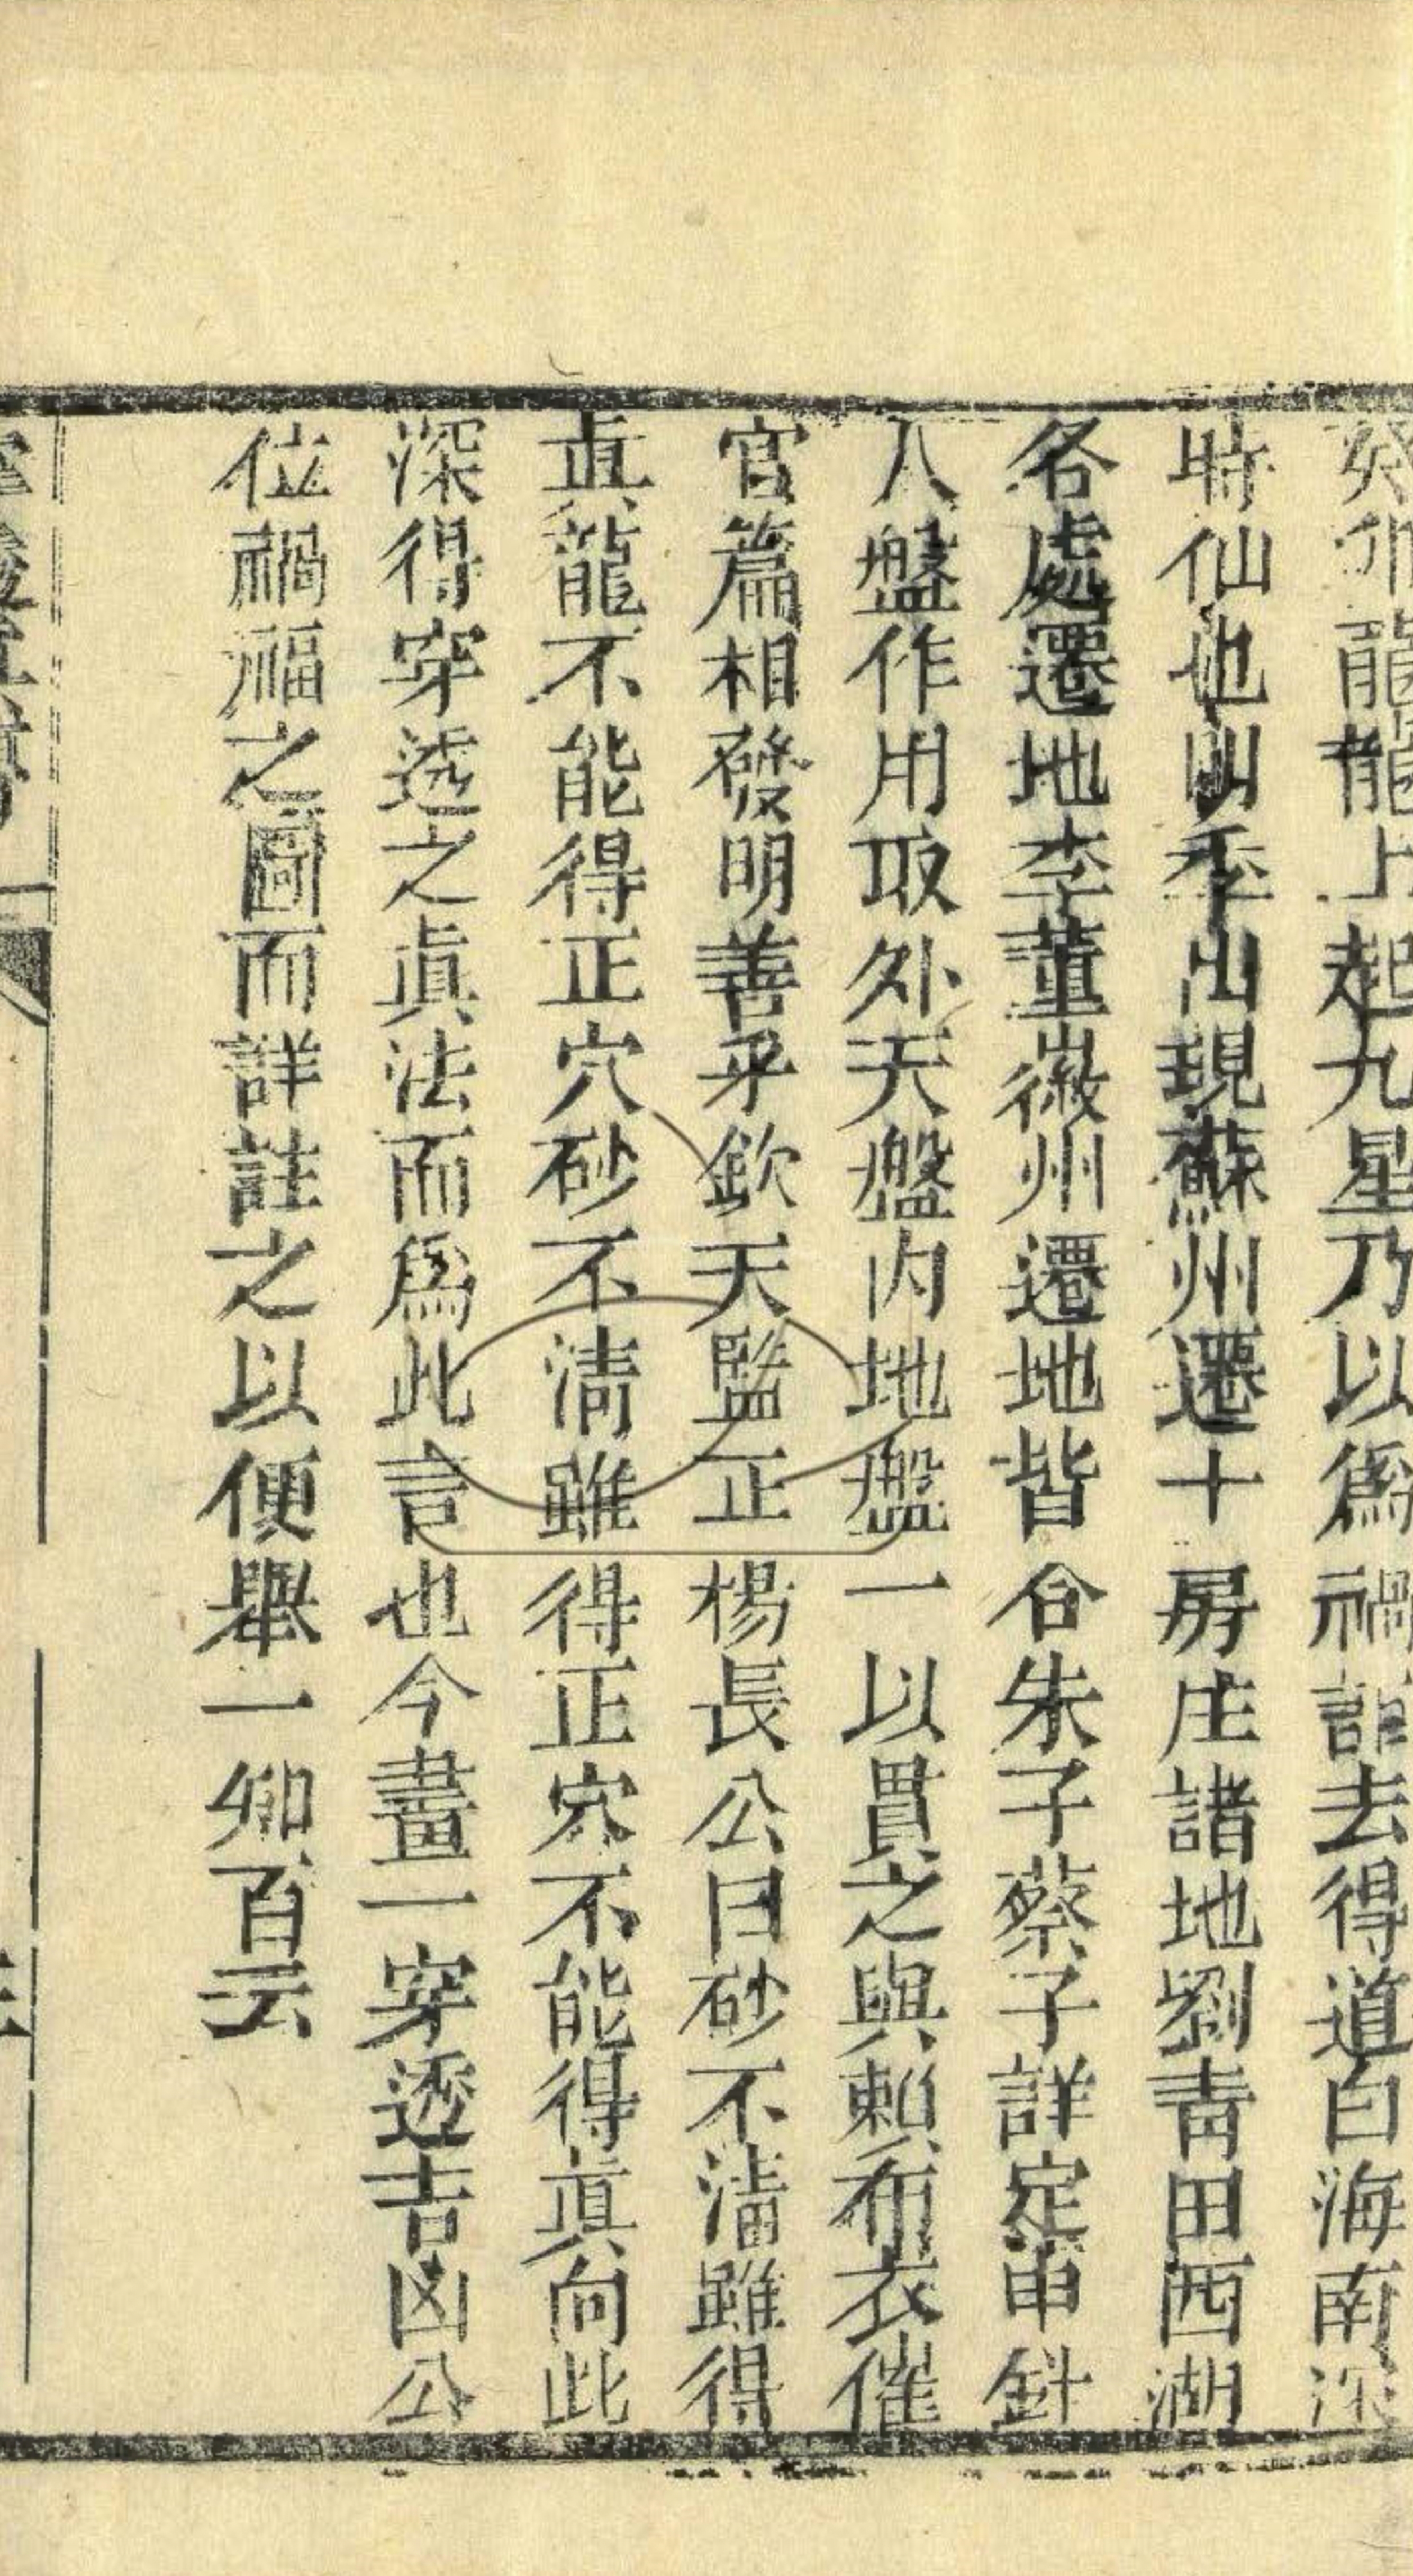 癸卯龍龍上起九星乃以爲禍詎去得道白海南深
時仙也明季出現蘇州遷十房庄諸地劉青田西湖
名處遷地李董徽州遷地皆合朱子蔡子詳定串針
人盤作用取外天盤内地盤一以貫之與賴布衣催
官篇相發明善乎欽天監正楊長公曰砂不清雖得
眞龍不能得正穴砂不清雖得正穴不能得眞向此
深得穿透之眞法而爲此言也今畫一穿透吉凶公
位禍福之圖而詳註之以便舉一知百云